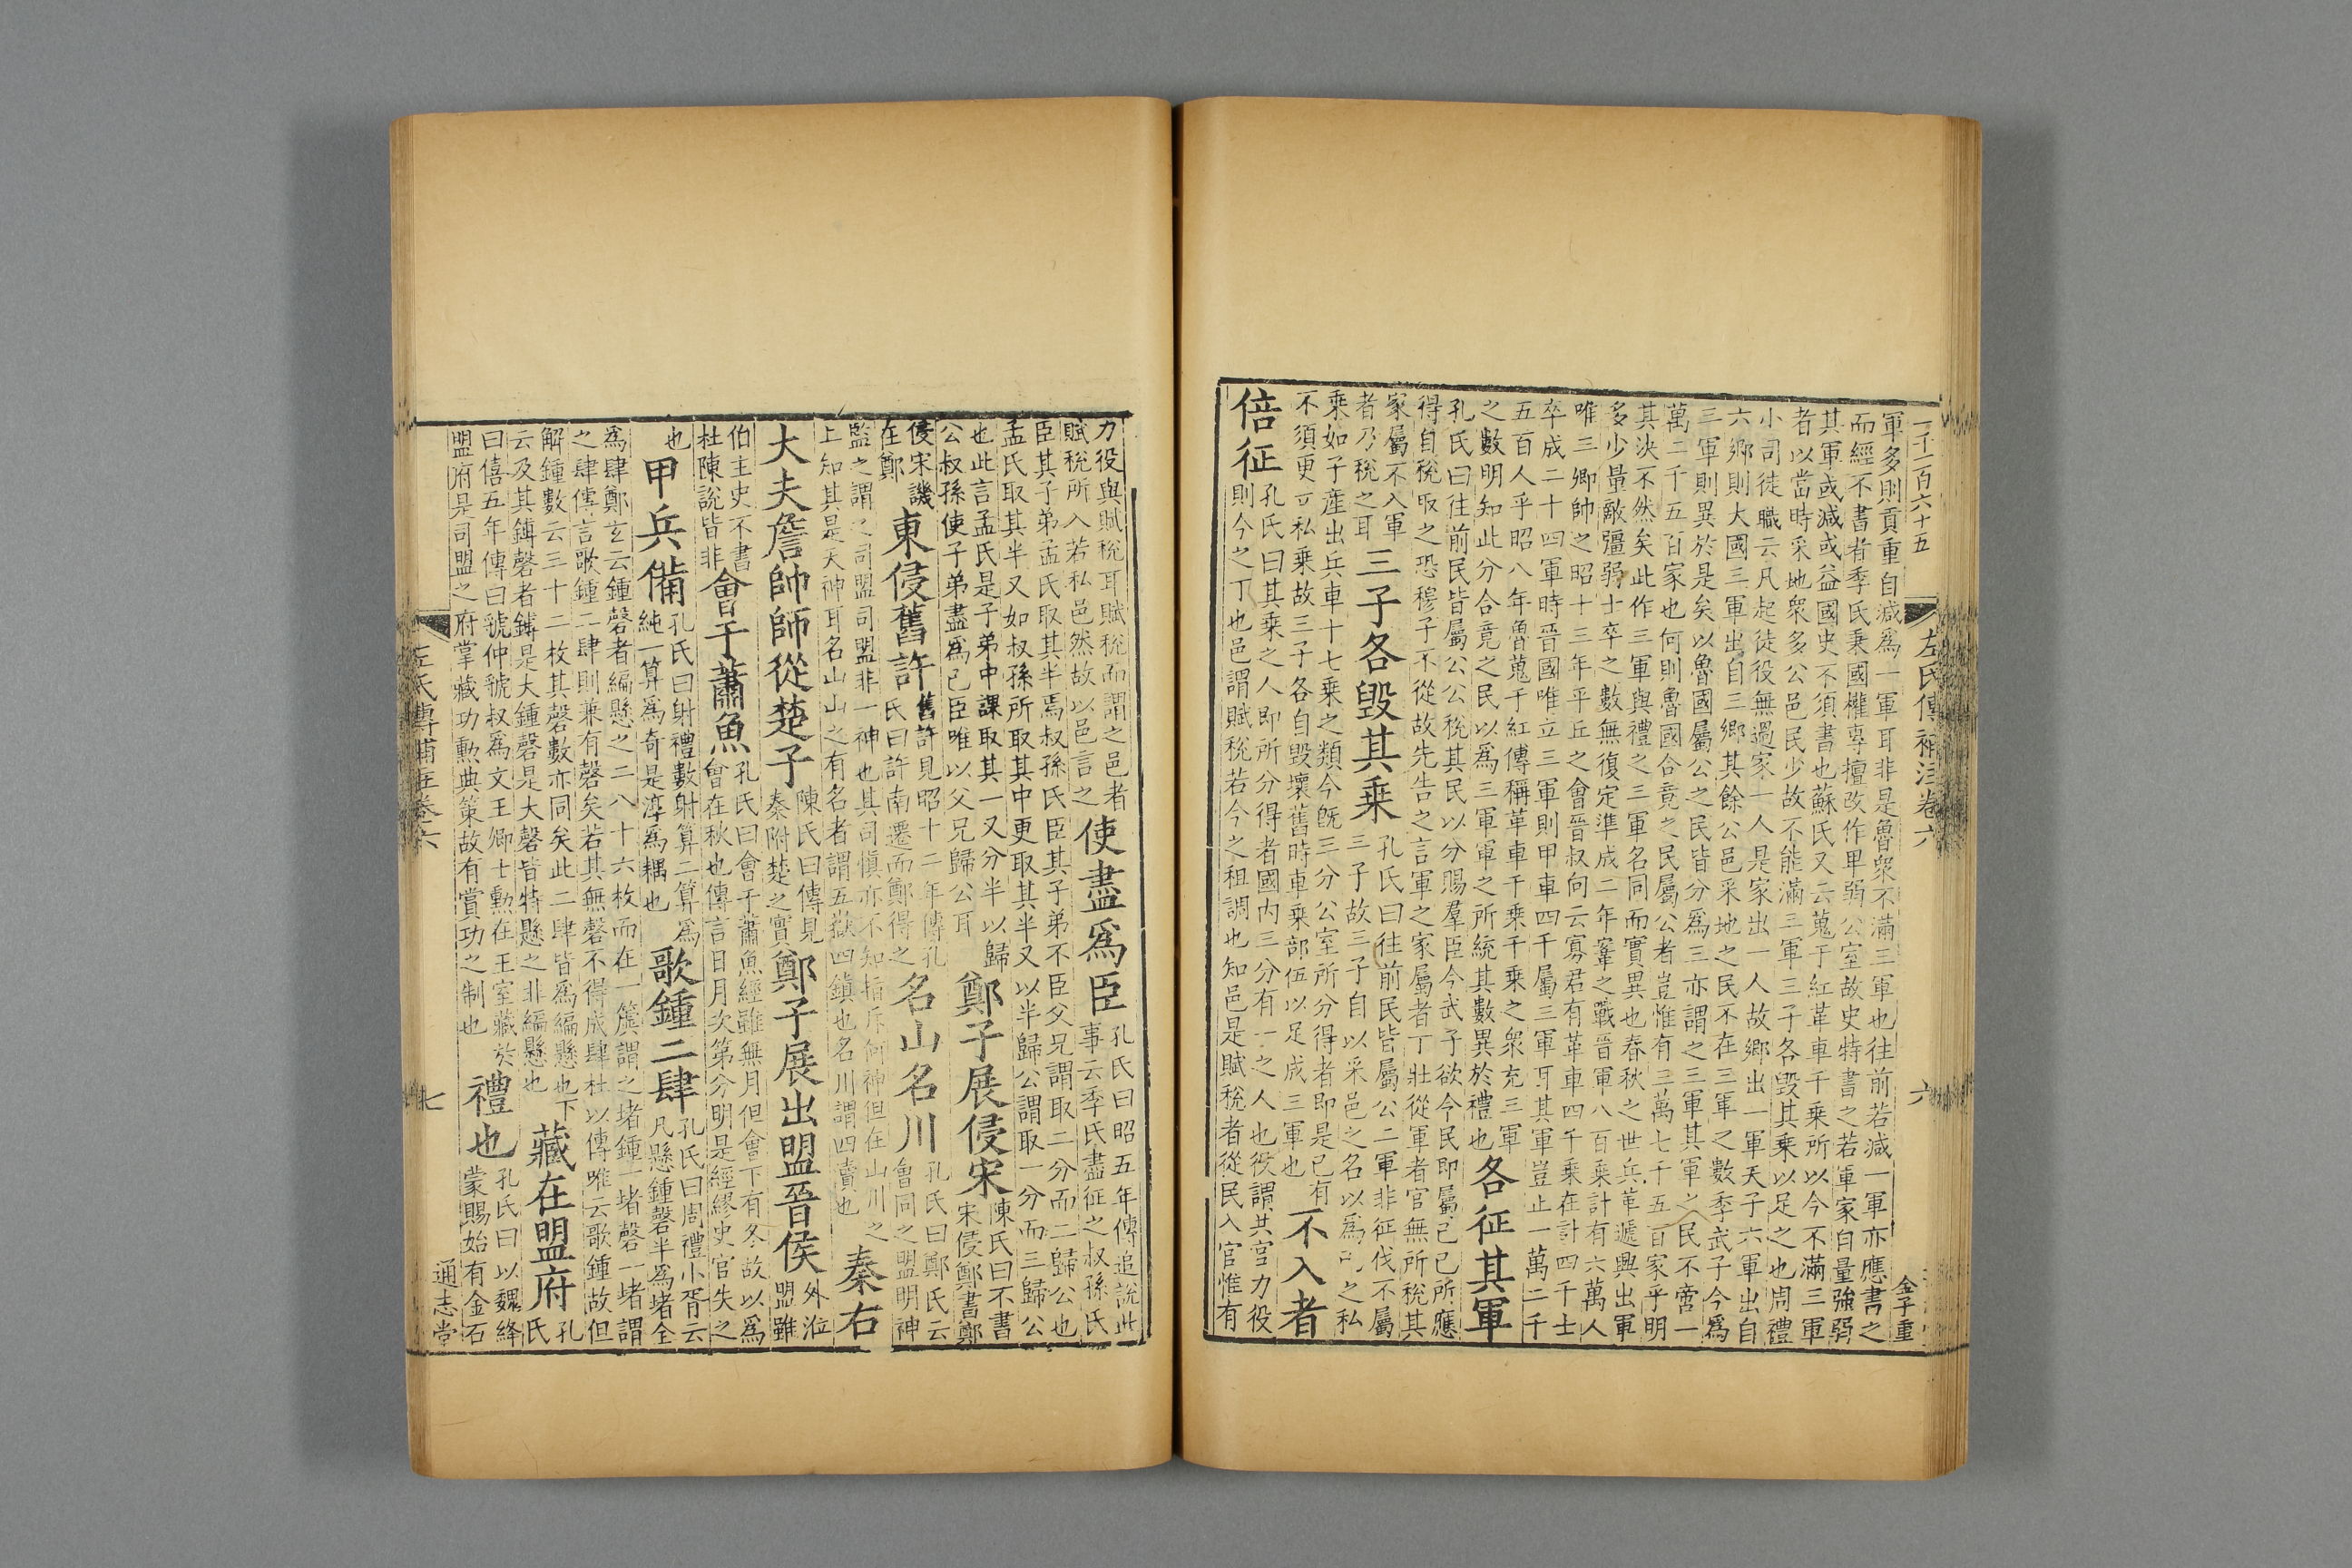 一千二百六十五 左氏傳補注卷六 六 金子重
軍多則貢重自減爲一軍耳非是魯衆不滿三軍也往前若減一軍亦應書之
而經不書者季氏秉國權專擅改作卑弱公室故史特書之若軍家自量強弱
其軍或減或益國史不須書也蘇氏又云蒐于紅革車千乘所以今不滿三軍
者以當時采地衆多公邑民少故不能滿三軍三子各毀其乘以足之也周禮
小司徒職云凡起徒役無過家一人是家出一人故鄉出一軍天子六軍出自
六鄉則大國三軍出自三鄉其餘公邑采地之民不在三軍之數季武子今爲
三軍則異於是矣以魯國屬公之民皆分爲三亦謂之三軍其軍之民不啻一
萬二千五百家也何則魯國合竟之民屬公者豈惟有三萬七千五百家乎明
其決不然矣此作三軍與禮之三軍名同而實異也春秋之世兵革遞興出軍
多少量敵彊弱士卒之數無復定準成二年鞌之戰晉軍八百乘計有六萬人
唯三卿帥之昭十三年平丘之會晉叔向云寡君有革車四千乘在計四千士
卒成二十四軍時晉國唯立三軍則甲車四千屬三軍耳其軍豈止一萬二千
五百人乎昭八年魯蒐于紅傳稱革車千乘千乘之衆充三軍
之數明知此分合竟之民以爲三軍軍之所統其數異於禮也
各征其軍
孔氏曰往前民皆屬公公稅其民以分賜羣臣今武子欲令民即屬己己所應
得自稅取之恐穆子不從故先告之言軍之家屬者丁壯從軍者官無所稅其
家屬不入軍
者乃稅之耳
三子各毀其乘
孔氏曰往前民皆屬公二軍非征伐不屬
三子故三子自以采邑之名以爲己之私
乘如子產出兵車十七乘之類今既三分公室所分得者即是己有
不須更可私乘故三子各自毀壞舊時車乘部伍以足成三軍也
不入者
倍征
孔氏曰其乘之人即所分得者國内三分有一之人也役謂共官力役
則今之丁也邑謂賦稅若今之租調也知邑是賦稅者從民入官惟有
力役與賦稅耳賦稅而謂之邑者
賦稅所入若私邑然故以邑言之
使盡爲臣
孔氏曰昭五年傳追說此
事云季氏盡征之叔孫氏
臣其子弟孟氏取其半焉叔孫氏臣其子弟不臣父兄謂取二分而二歸公也
孟氏取其半又如叔孫所取其中更取其半又以半歸公謂取一分而三歸公
也此言孟氏是子弟中課取其一又分半以歸
公叔孫使子弟盡爲己臣唯以父兄歸公耳
鄭子展侵宋
陳氏曰不書
宋侵鄭書鄭
侵宋譏
在鄭
東侵舊許
舊許見昭十二年傳孔
氏曰許南遷而鄭得之
名山名川
孔氏曰鄭氏云
會同之盟明神
監之謂之司盟司盟非一神也其司愼亦不知指斥何神但在山川之
上知其是天神耳名山山之有名者謂五嶽四鎮也名川謂四瀆也
秦右
大夫詹帥師從楚子
陳氏曰傳見
秦附楚之實
鄭子展出盟晉侯
外涖
盟雖
伯主史不書
杜陳說皆非
會于蕭魚
孔氏曰會于蕭魚經雖無月但會下有冬故以爲
會在秋也傳言日月次第分明是經繆史官失之
也
甲兵備
孔氏曰射禮數射算二算爲
純一算爲奇是淳爲耦也
歌鍾二肆
孔氏曰周禮小胥云
凡懸鍾磬半爲堵全
爲肆鄭玄云鍾磬者編懸之二八十六枚而在一簴謂之堵鍾一堵磬一堵謂
之肆傳言歌鍾二肆則兼有磬矣若其無磬不得成肆杜以傳唯云歌鍾故但
解鍾數云三十二枚其磬數亦同矣此二肆皆爲編懸也下
云及其鎛磬者鎛是大鍾磬是大磬皆特懸之非編懸也
藏在盟府
孔
氏
曰僖五年傳曰虢仲虢叔爲文王卿士勳在王室藏於
盟府是司盟之府掌藏功勲典策故有賞功之制也
禮也
孔氏曰以魏絳
蒙賜始有金石
左氏傳補注卷六 七 通志堂